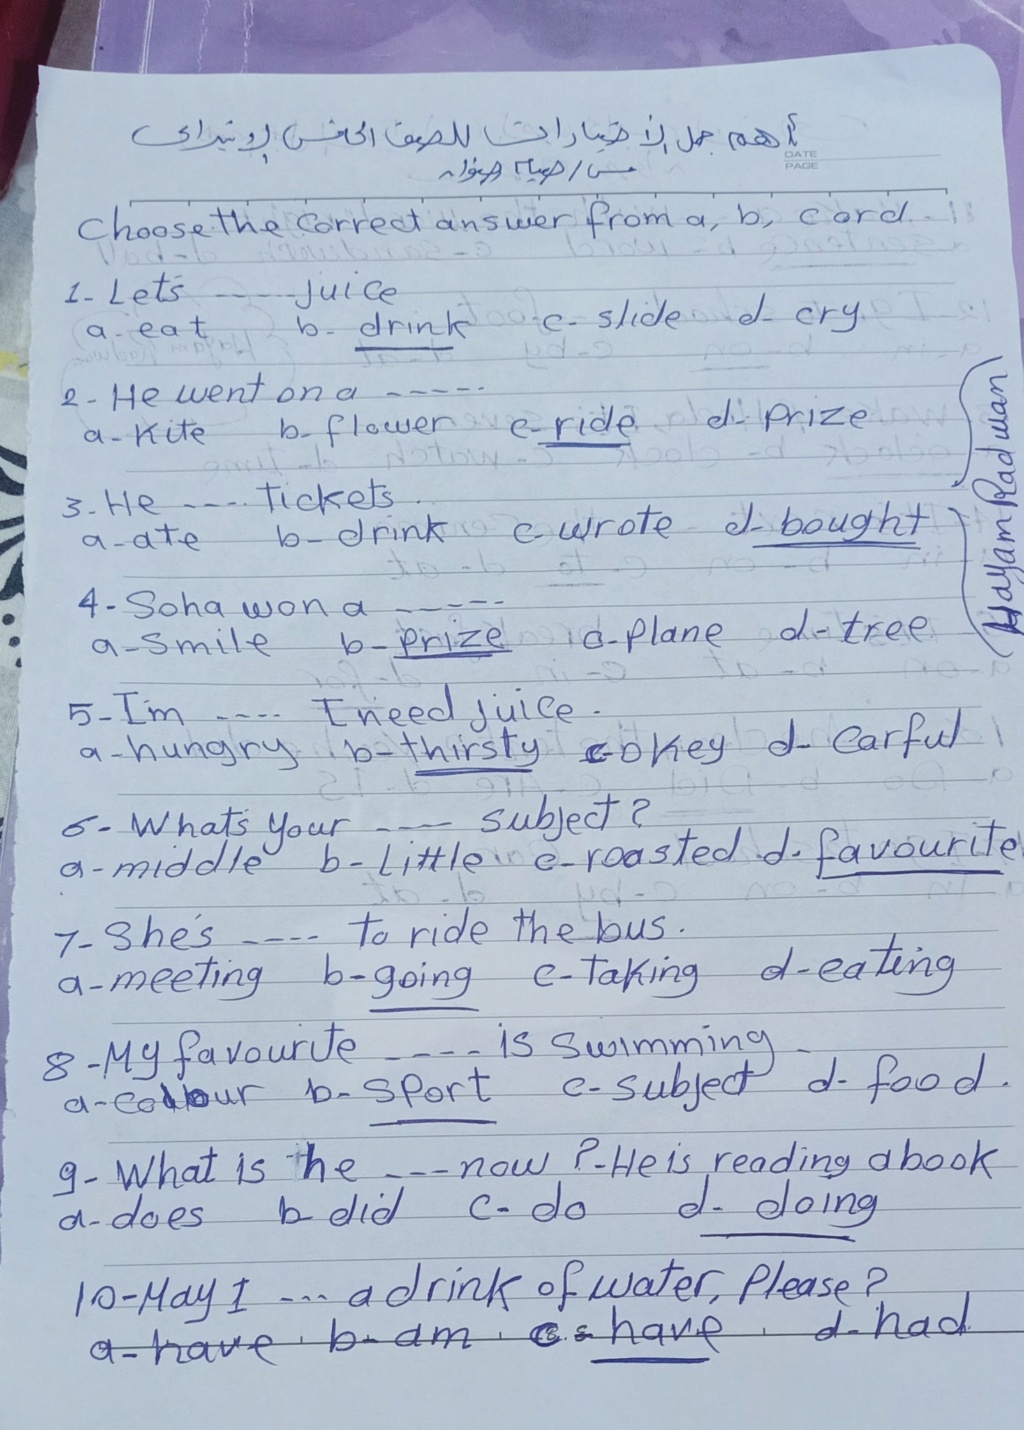 أهم جمل الاختيارات للصف الخامس الابتدائى
مس / هيام رضوان
DATE
PAGE
Choose the correct answer from a, b, c or d.
1- Let's ----- juice
a- eat b- drink c- slide d- cry
2- He went on a -----
a- Kite b- flower c- ride d- Prize
3- He ---- Tickets.
a- ate b- drink c- wrote d- bought
4- Soha won a -----
a- Smile b- prize c- plane d- tree
5- I'm ---- I need juice.
a- hungry b- thirsty c- okey d- Carful
6- What's your ---- subject?
a- middle b- Little c- roasted d- favourite
7- She's ---- to ride the bus.
a- meeting b- going c- Taking d- eating
8- My favourite ---- is Swimming.
a- colour b- Sport c- Subject d- food.
9- What is he --- now? - He is reading a book
a- does b- did c- do d- doing
10- May I --- a drink of water, Please?
a- have b- am c- have d- had
Hayam Radwan